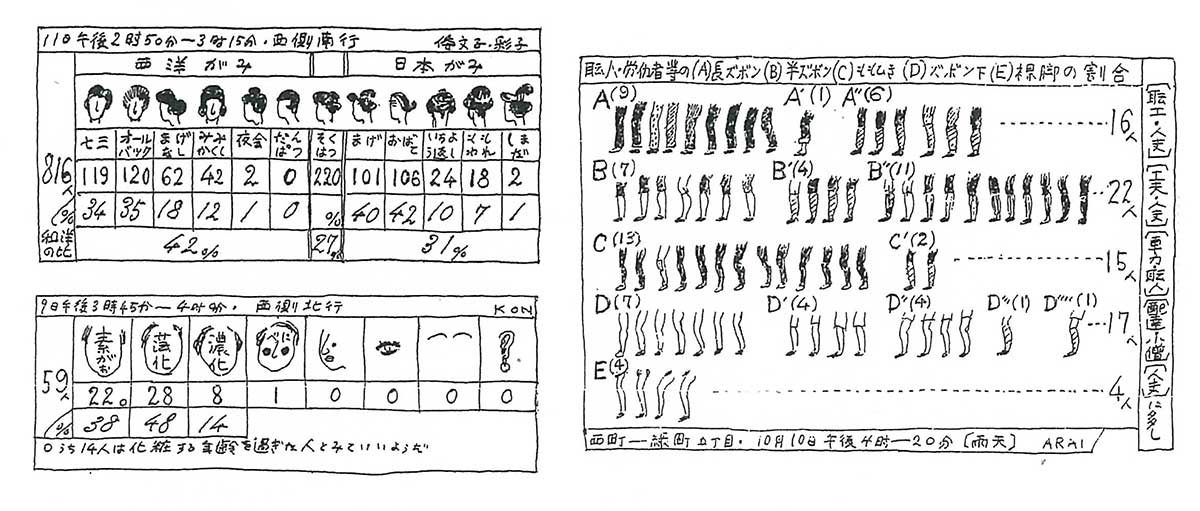 11日午後2時50分〜3時15分・西側南行
西洋がみ 日本がみ
七三 オールバック まげなし みみかくし 夜会 だんぱつ そくはつ まげ おばこ いちょう返し ももわれ しまだ
816人 119 120 62 42 2 0 220 101 106 24 18 2
% 34 35 18 12 1 0 % 40 42 10 7 1
和洋の比 42% 27% 31%
9日午後3時45分〜4時 西側北行 KON
素がお 薄化 濃化 べに ?
59人 22。 28 8 1 0 0 0 0
% 38 48 14
○うち14人は化粧する年齢を過ぎた人とみていいようだ
職人・労働者等の(A)長ズボン(B)半ズボン(C)ももひき(D)ズボン下(E)裸脚の割合
A(9) A'(1) A"(6) 16人
B(7) B'(4) B"(11) 22人
C(13) C'(2) 15人
D(7) D'(4) D"(4) D'''(1) D''''(1) 17人
E(4) 4人
西町—緑町五丁目・10月10日午後4時—20分〔雨天〕 ARAI
[職工・人夫][工夫・人夫][車力職人][配達小僧][人夫]に多し